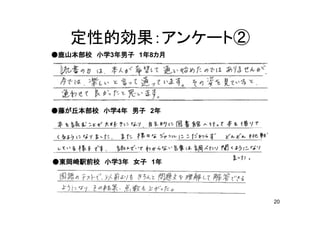 定性的効果：アンケート②
●鹿山本部校　小学3年男子　1年8カ月
読書の力は、本人が希望して通い始めたのではありませんが
今では楽しいと言って通っています。その姿を見ていると、
通わせて良かったと思います。
●藤が丘本部校　小学4年　男子　2年
本を読むことが大好きになり、自主的に図書館へ行って本を借りて
くるようになりました。また様々なジャンルにこだわらず どんどん挑戦
している様子です。読んでいてわからない言葉は調べたり聞くようになり
ました。
●東岡崎駅前校　小学3年　女子　1年
国語のテストで、以前よりも きちんと問題文を理解して解答できる
ようになり その結果、点数も上がった。
20